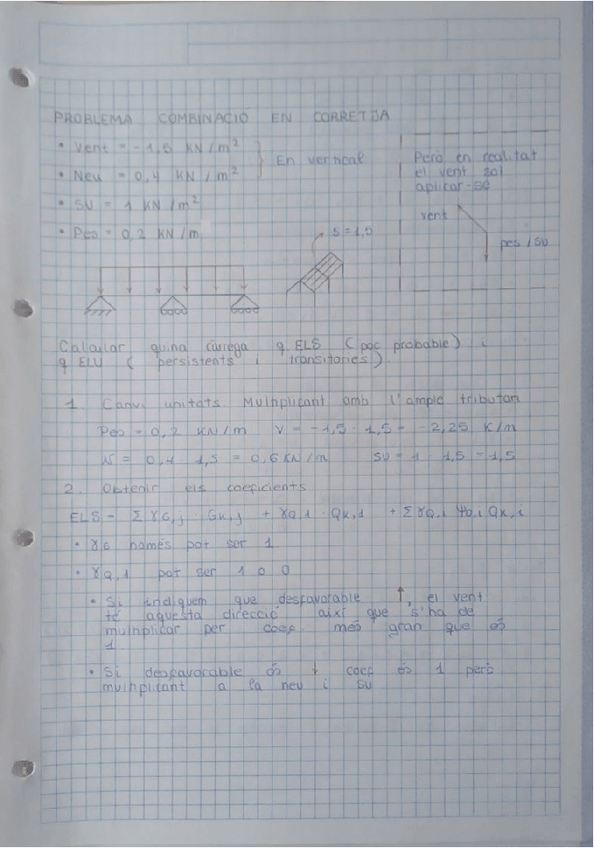 PROBLEMA COMBINACIÓ EN CORRETJA
• Vent = -1,5 KN/m²
• Neu = 0,4 KN/m²
En vertical
• SU = 1 KN/m²
• Peo = 0,2 KN/m
Però en realitat
el vent sol
aplicar-se
vent
pes/SU
S=1,5
Calcular quina càrrega q ELS (poc probable) i
q ELU (persistents i transitories).
1. Canvi unitats. Multiplicant amb l'ample tributari
Peo = 0,2 KN/m V = -1,5 · 1,5 = -2,25 K/m
N = 0,4 · 1,5 = 0,6 KN/m SU = 1 · 1,5 = 1,5
2. Obtenir els coeficients
ELS = Σ γG,j · Gk,j + γQ,1 · Qk,1 + Σ γQ,i ψ0,i Qk,i
• γG només pot ser 1
• γQ,1 pot ser 1 o 0
• Si indiquem que desfavorable ↑, el vent
té aquesta direcció així que s'ha de
multiplicar per coef més gran que és
1
• Si desfavorable és ↓ coef és 1 però
multiplicant a la neu i SU